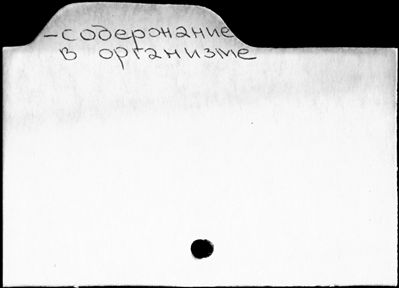 -содержание
в организме